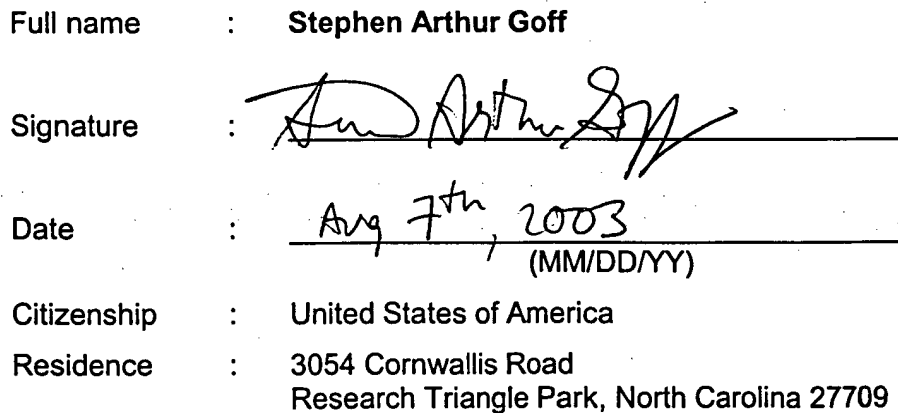 Full name : Stephen Arthur Goff
Signature : Arthur Goff
Date : Aug 7th, 2003
(MM/DD/YY)
Citizenship : United States of America
Residence : 3054 Cornwallis Road
Research Triangle Park, North Carolina 27709